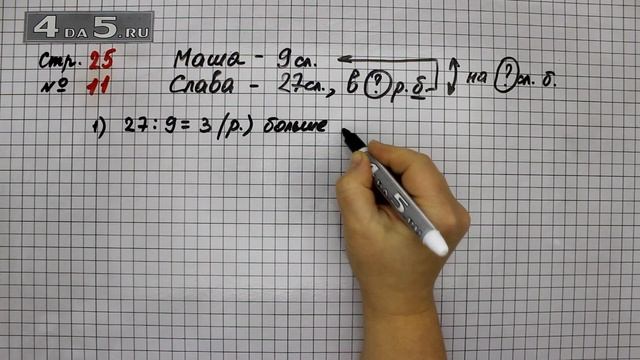 4DA5.RU
Стр. 25 Маша - 9 сл.
№ 11 Слава - 27 сл., в ? р. б. на ? сл. б.
1) 27 : 9 = 3 (р.) больше